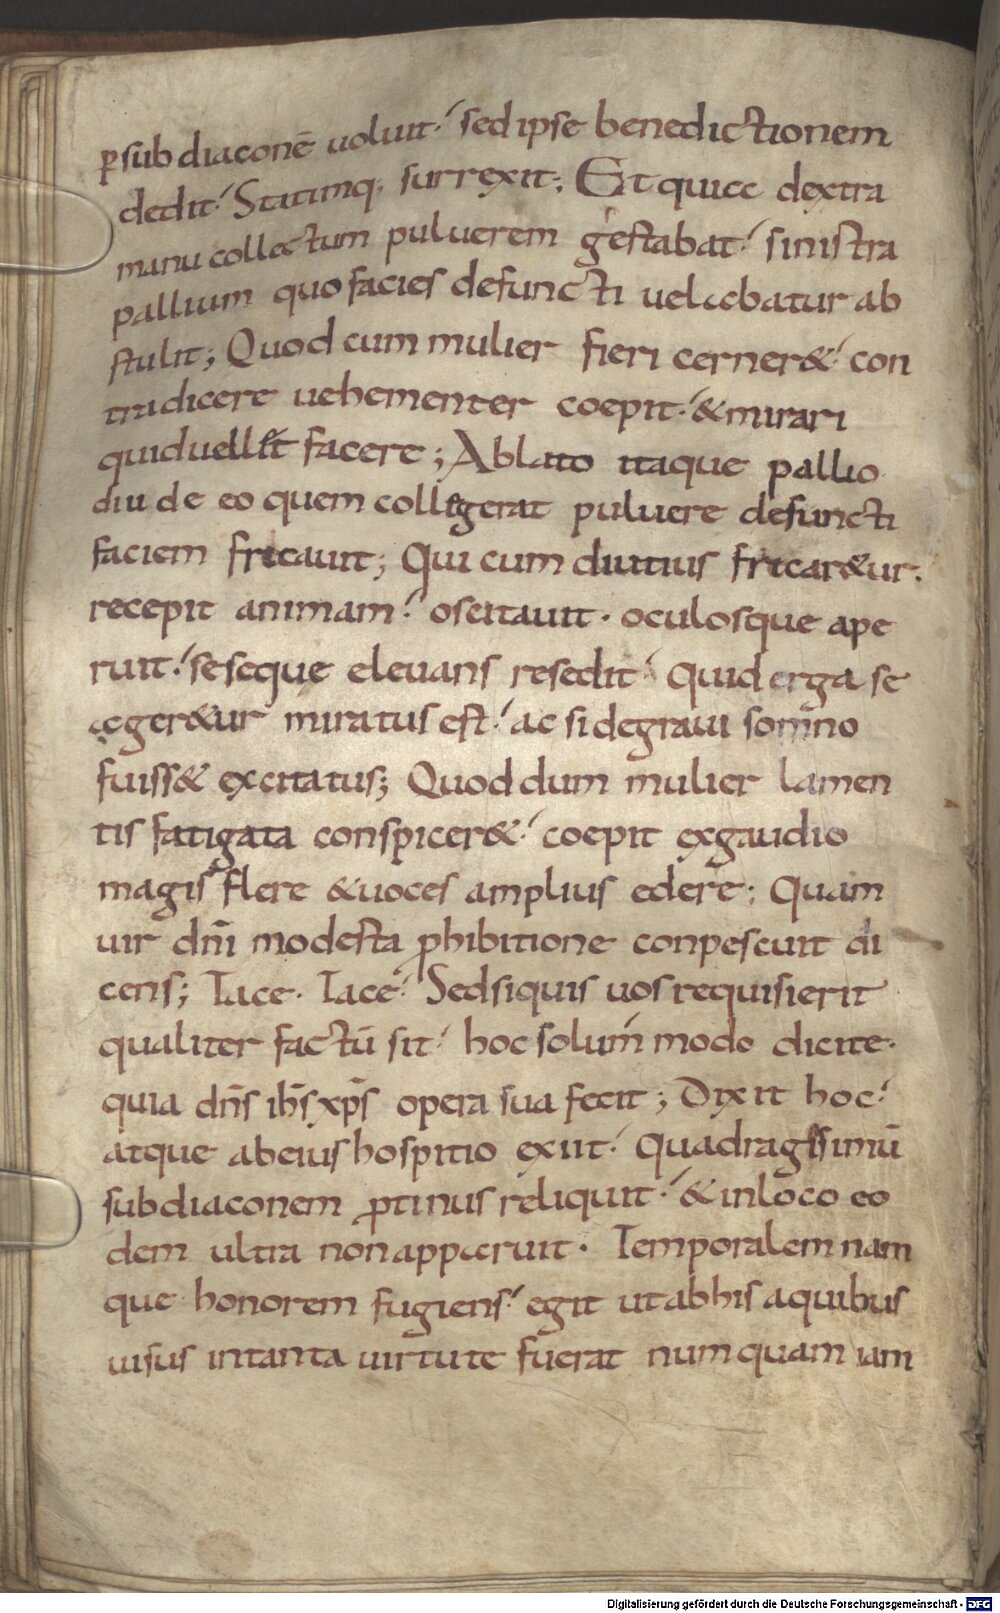 p̲subdiaconē uoluit; sed ipse benedictionem
dedit; Statimq; surrexit; Et quicc dextra
manu collectum puluerem gestabat; sinistra
pallium quo facies defuncti uelabatur ab
stulit; Quod cum mulier fieri cerner&; con
tradicere uehementer coepit; & mirari
quid uellet facere; Ablato itaque pallio
diu de eo quem collegerat puluere defuncti
faciem fricauit; Qui cum diutius fricar&ur.
recepit animam; oscitauit. oculosque ape
ruit; seseque eleuans resedit; Quid erga se
ageretur miratus est; ac si de graui somno
fuiss& excitatus; Quod dum mulier lamen
tis fatigata conspicer&; coepit ex gaudio
magis flere & uoces amplius edere; Quam
uir dn̄i modesta p̱hibitione conpescuit di
cens; Tace. Tace; Sed si quis uos requisierit
qualiter factū sit; hoc solum modo dicite.
quia dn̄s ih̄s xp̄s opera sua fecit; Dixit hoc;
atque ab eius hospitio exiit; Quadragessimū
subdiaconem p̱tinus reliquit; & in loco eo
dem ultra non apparuit. Temporalem nam
que honorem fugiens; egit ut ab his a quibus
uisus in tanta uirtute fuerat numquam iam
Digitalisierung gefördert durch die Deutsche Forschungsgemeinschaft - DFG